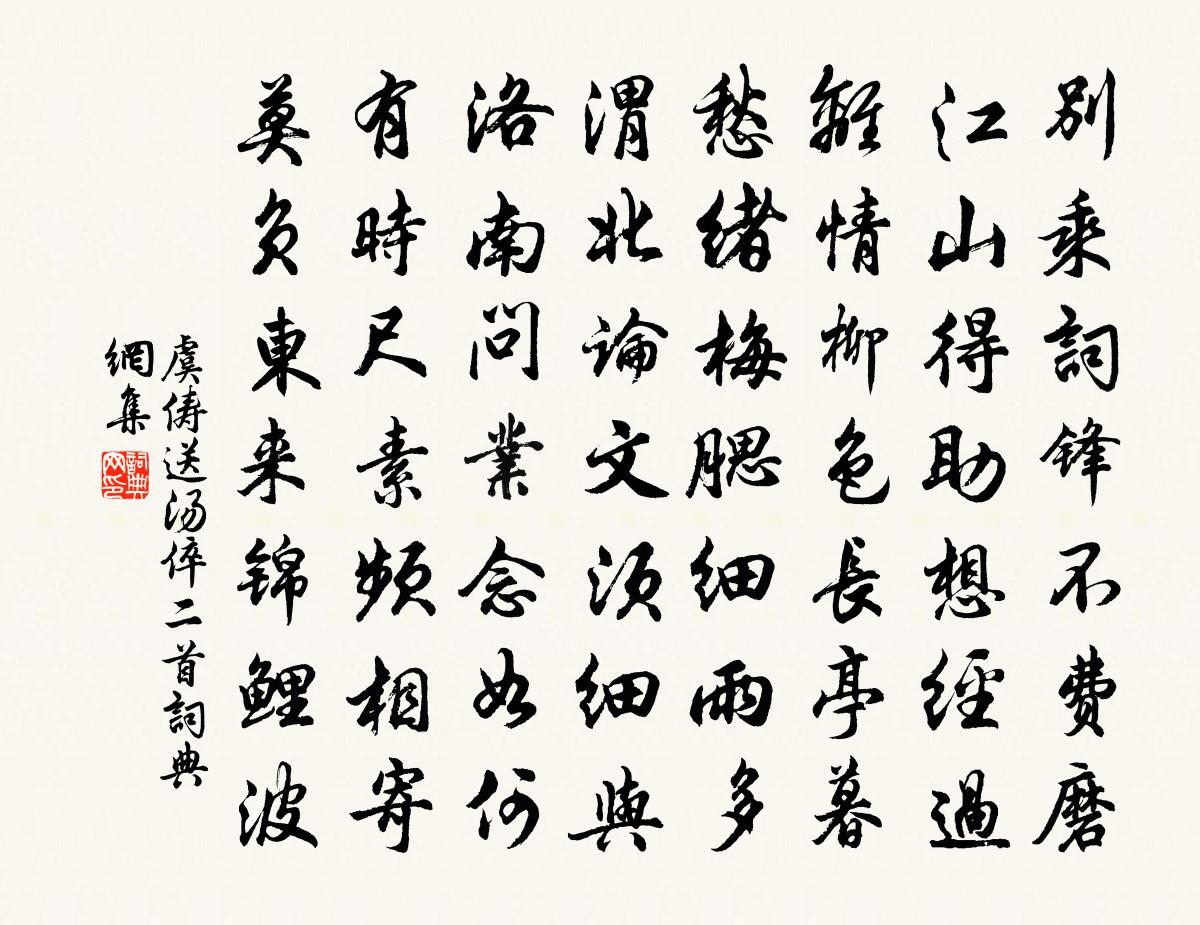 別乘詞鋒不費磨
江山得助想經過
離情柳色長亭暮
愁緒梅腮細雨多
渭北論文須細與
洛南問業念如何
有時尺素頻相寄
莫負東来錦鯉波
虞儔送汤倅二首詞典
網集
詞典
网印